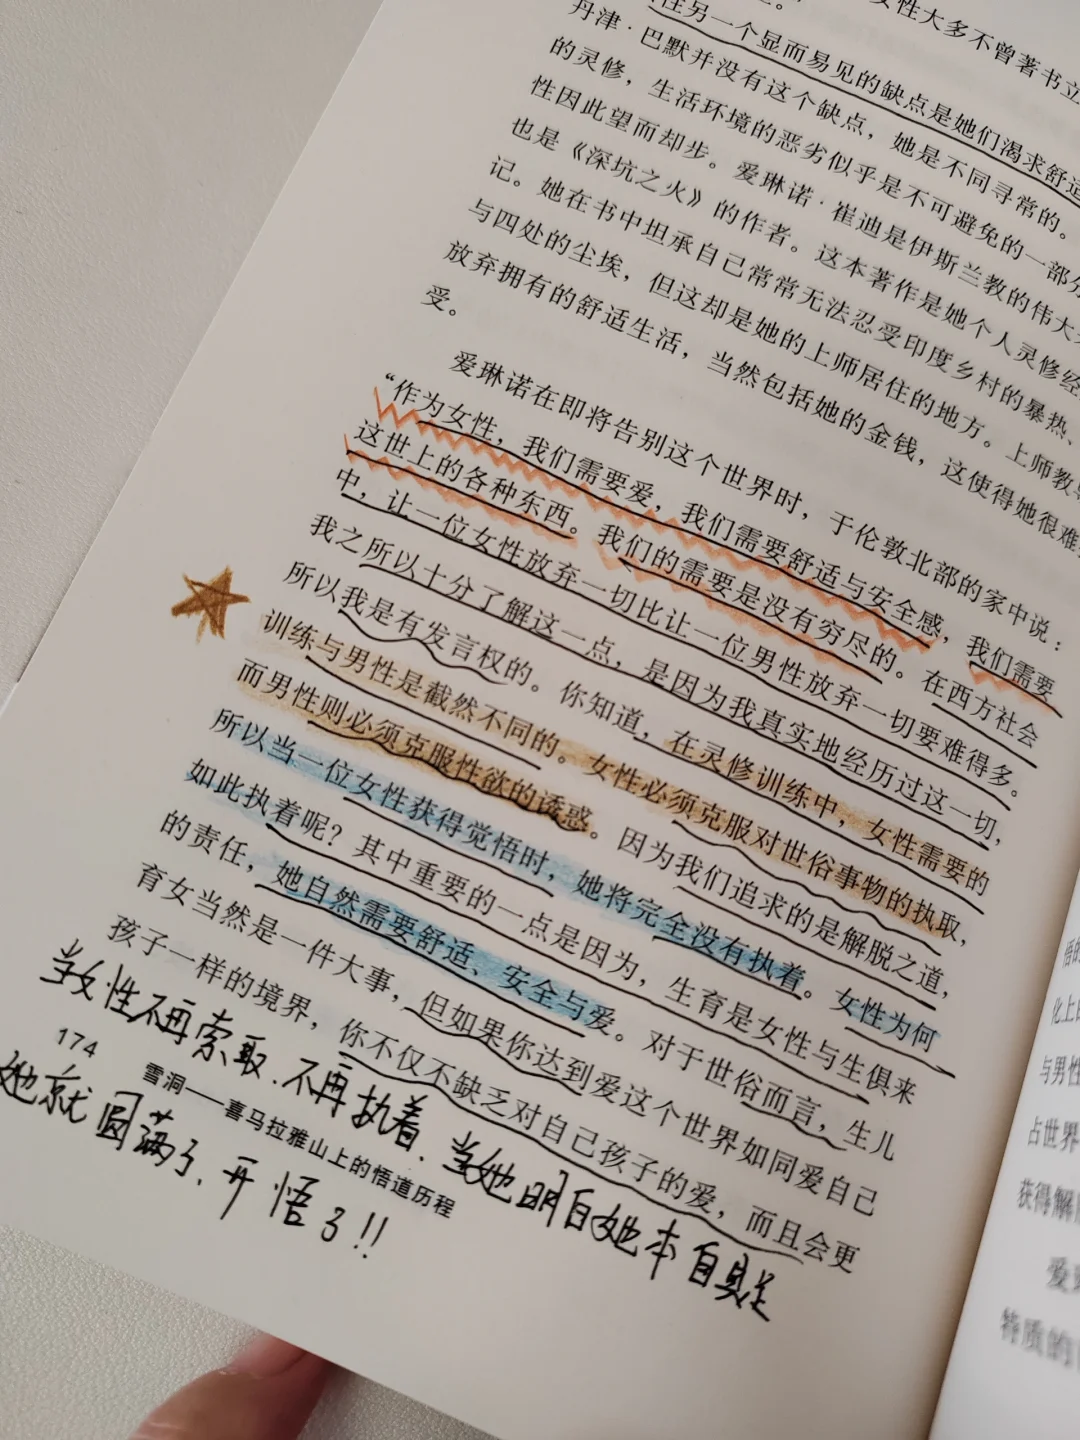 女性大多不曾著书立
住另一个显而易见的缺点是她们渴求舒适
丹津·巴默并没有这个缺点，她是不同寻常的。
的灵修，生活环境的恶劣似乎是不可避免的一部分
性因此望而却步。爱琳诺·崔迪是伊斯兰教的伟大
也是《深坑之火》的作者。这本著作是她个人灵修经
记。她在书中坦承自己常常无法忍受印度乡村的暴热、
与四处的尘埃，但这却是她的上师居住的地方。上师教
放弃拥有的舒适生活，当然包括她的金钱，这使得她很难
受。
爱琳诺在即将告别这个世界时，于伦敦北部的家中说：
“作为女性，我们需要爱，我们需要舒适与安全感，我们需要
这世上的各种东西。我们的需要是没有穷尽的。在西方社会
中，让一位女性放弃一切比让一位男性放弃一切要难得多。
我之所以十分了解这一点，是因为我真实地经历过这一切，
所以我是有发言权的。你知道，在灵修训练中，女性需要的
训练与男性是截然不同的。女性必须克服对世俗事物的执取，
而男性则必须克服性欲的诱惑。因为我们追求的是解脱之道，
所以当一位女性获得觉悟时，她将完全没有执着。女性为何
如此执着呢？其中重要的一点是因为，生育是女性与生俱来
的责任，她自然需要舒适、安全与爱。对于世俗而言，生儿
育女当然是一件大事，但如果你达到爱这个世界如同爱自己
孩子一样的境界，你不仅不缺乏对自己孩子的爱，而且会更
当女性不再索取、不再执着、当她明白她本自具足
她就圆满了、开悟了!!
174
雪洞——喜马拉雅山上的悟道历程
悟的
化上的
与男性
占世界
获得解
爱
特质的